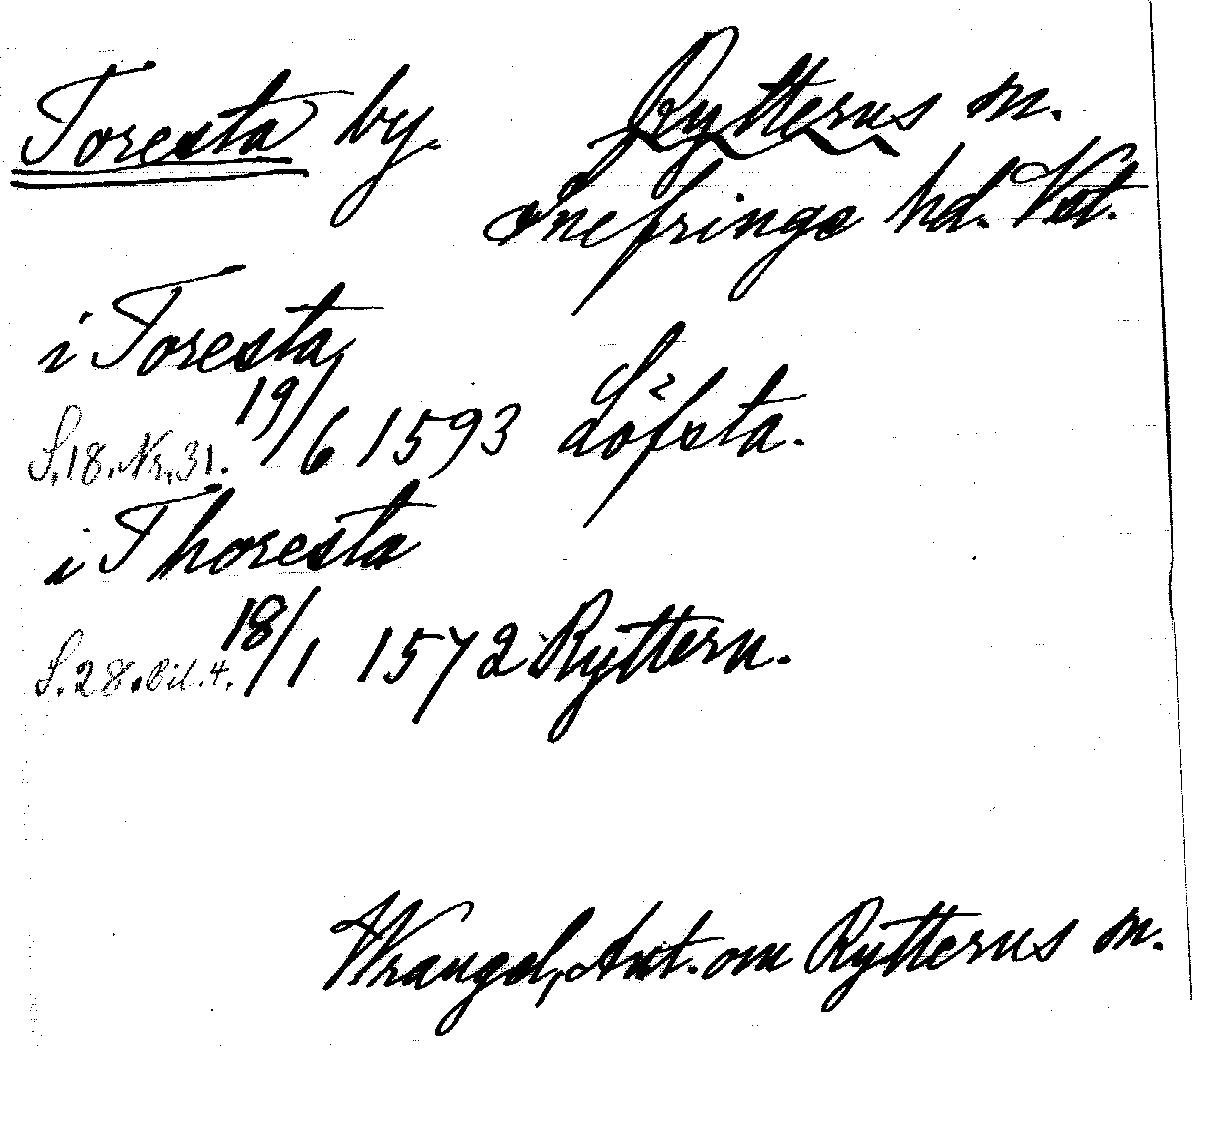 Toresta by. Rytterns sn.
Snefringe hd. Vst.
i Toresta
S.18.Nr.31. 19/6 1593 Löfsta.
i Thoresta
S.28.Bil.4. 18/1 1572 Ryttern.
Wrangel, Ant. om Rytterns sn.